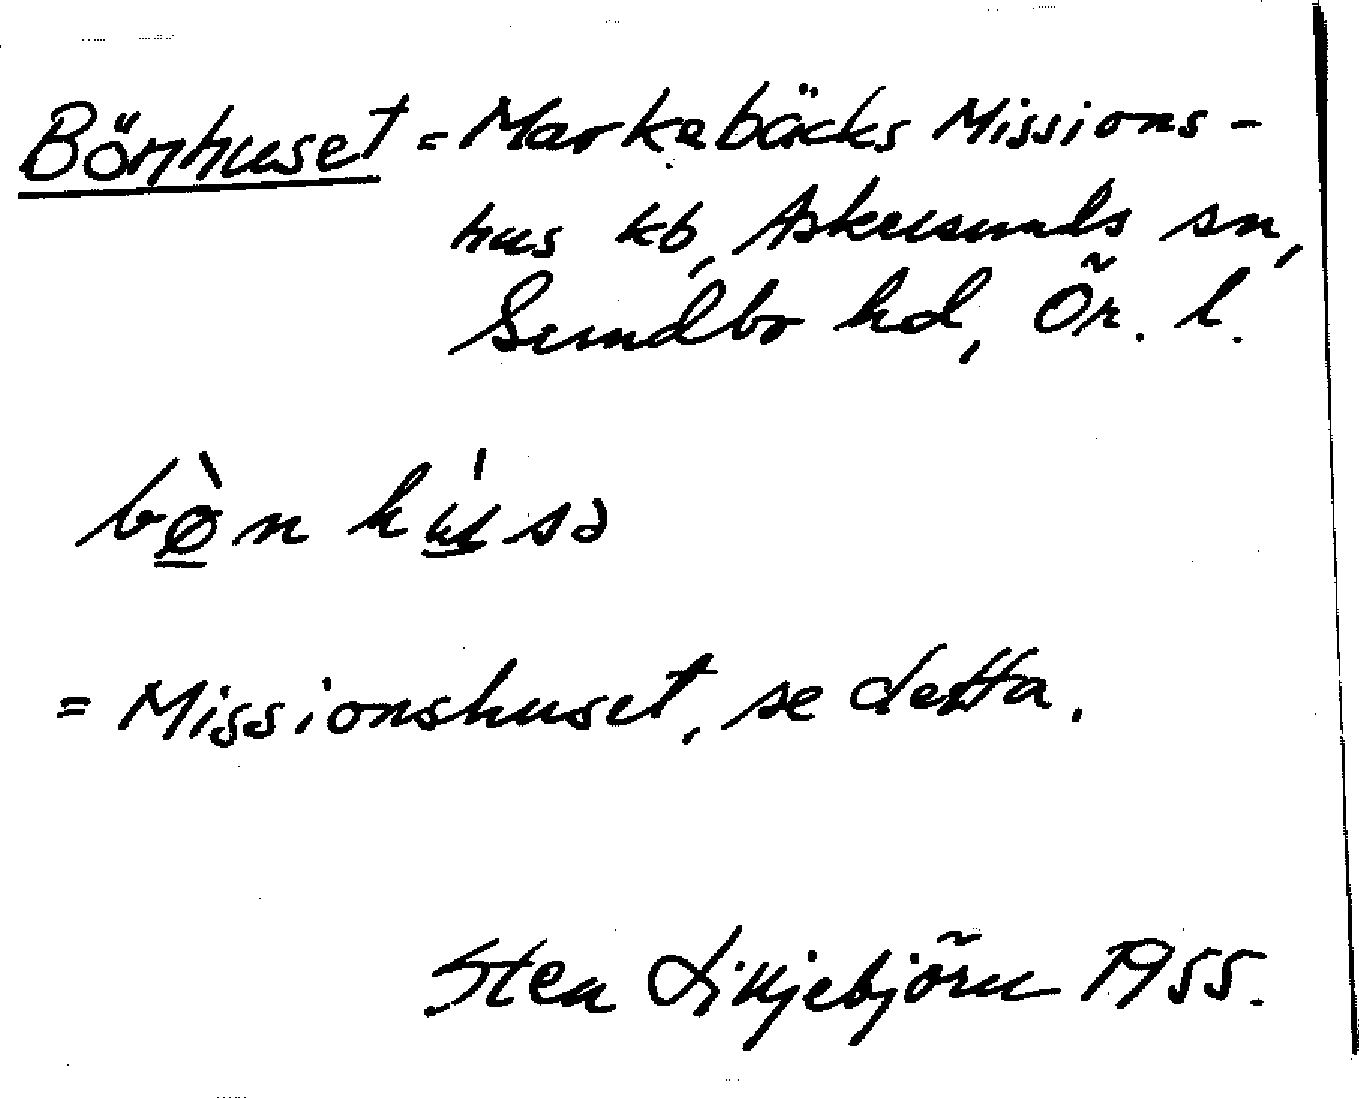 Bönhuset = Markebäcks Missions-
hus kb, Askersunds sn,
Sundbo hd, Ör. l.
bø̀n hu̍sə
= Missionshuset, se detta.
Sten Liljebjörn 1955.